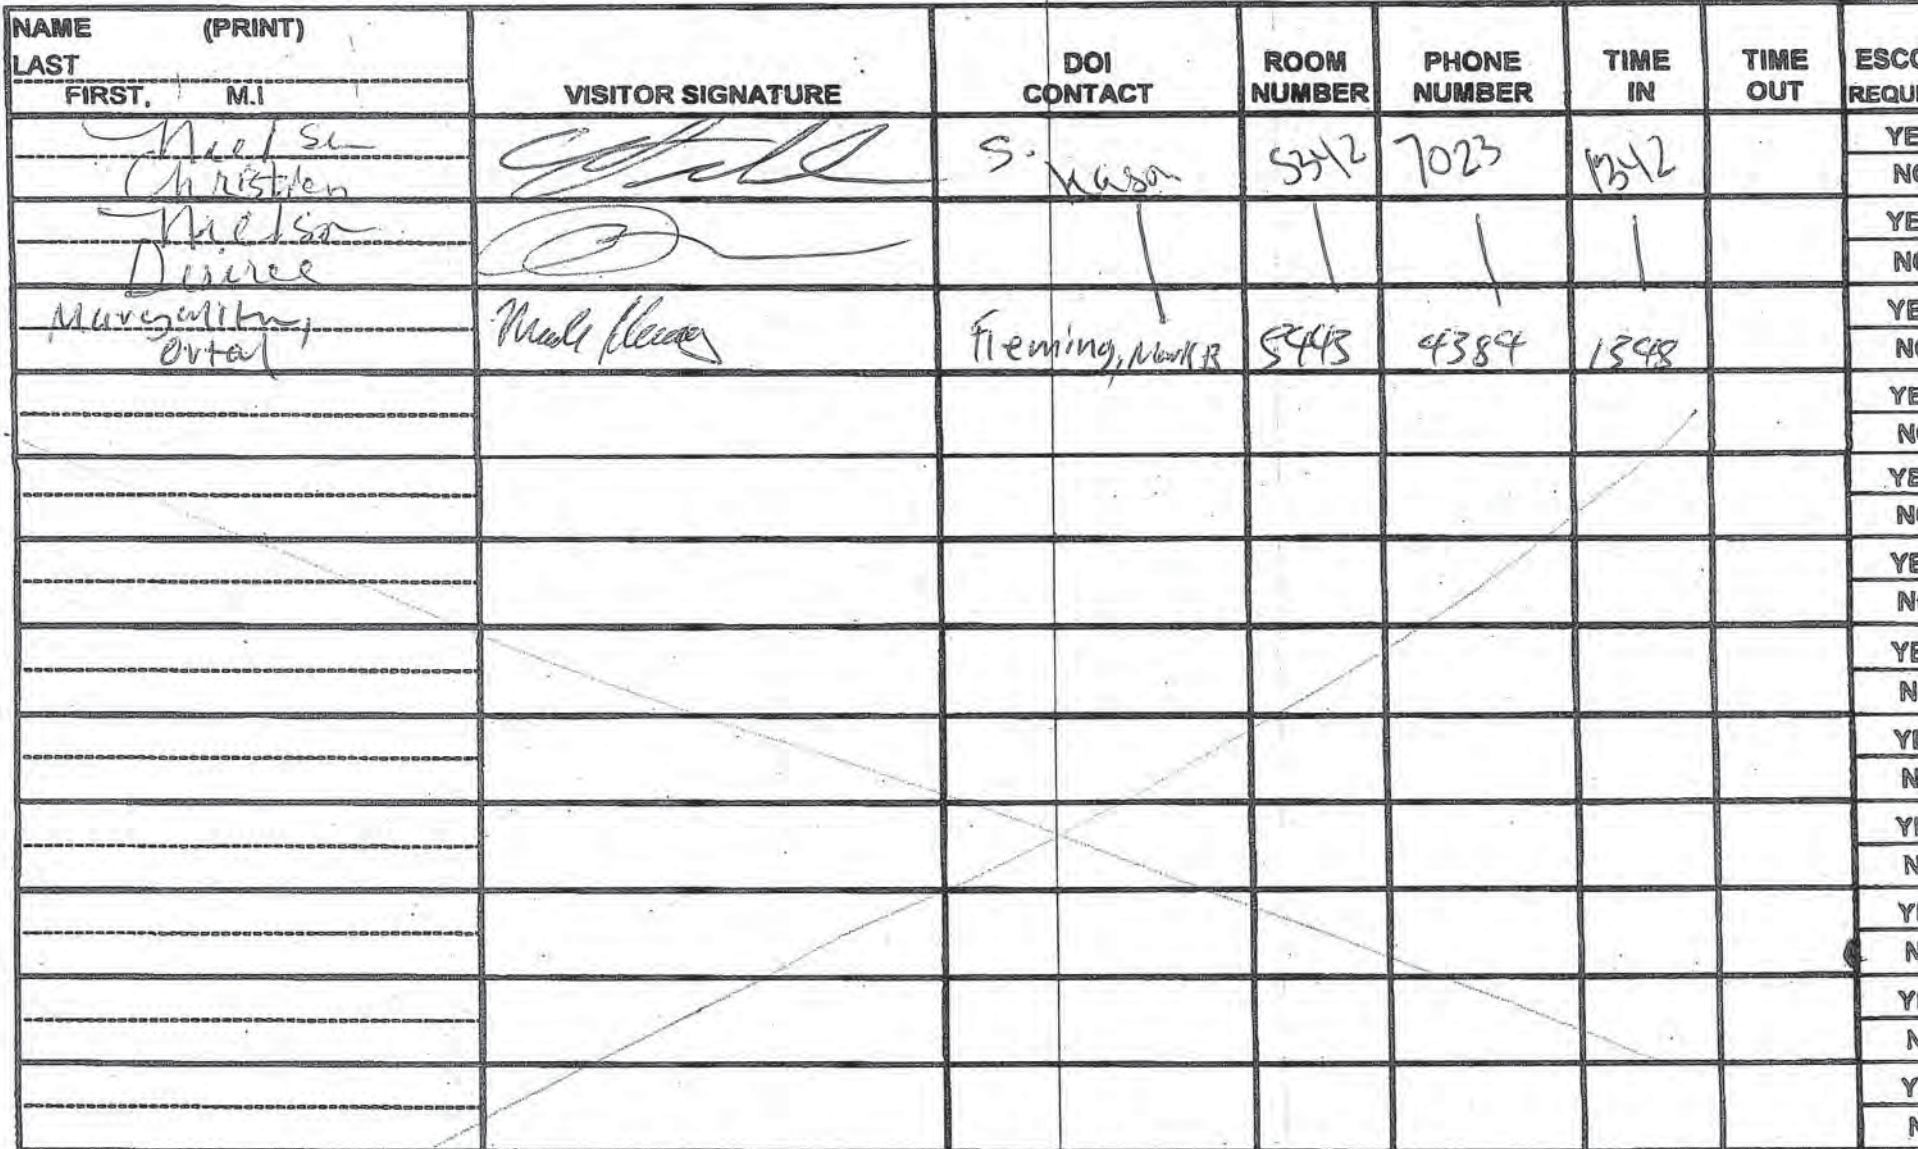 NAME (PRINT)
LAST
FIRST, M.I
VISITOR SIGNATURE
DOI
CONTACT
ROOM
NUMBER
PHONE
NUMBER
TIME
IN
TIME
OUT
ESCO
REQUI
Christen
S. Kason 5342 7023 1342
YE
NO
Nielson
Desiree
YE
NO
Ortal
Fleming, Mark B 5443 4384 1348
YE
NO
YE
NO
YE
NO
YE
N
YE
N
YE
N
YE
N
YE
N
Y
N
Y
N